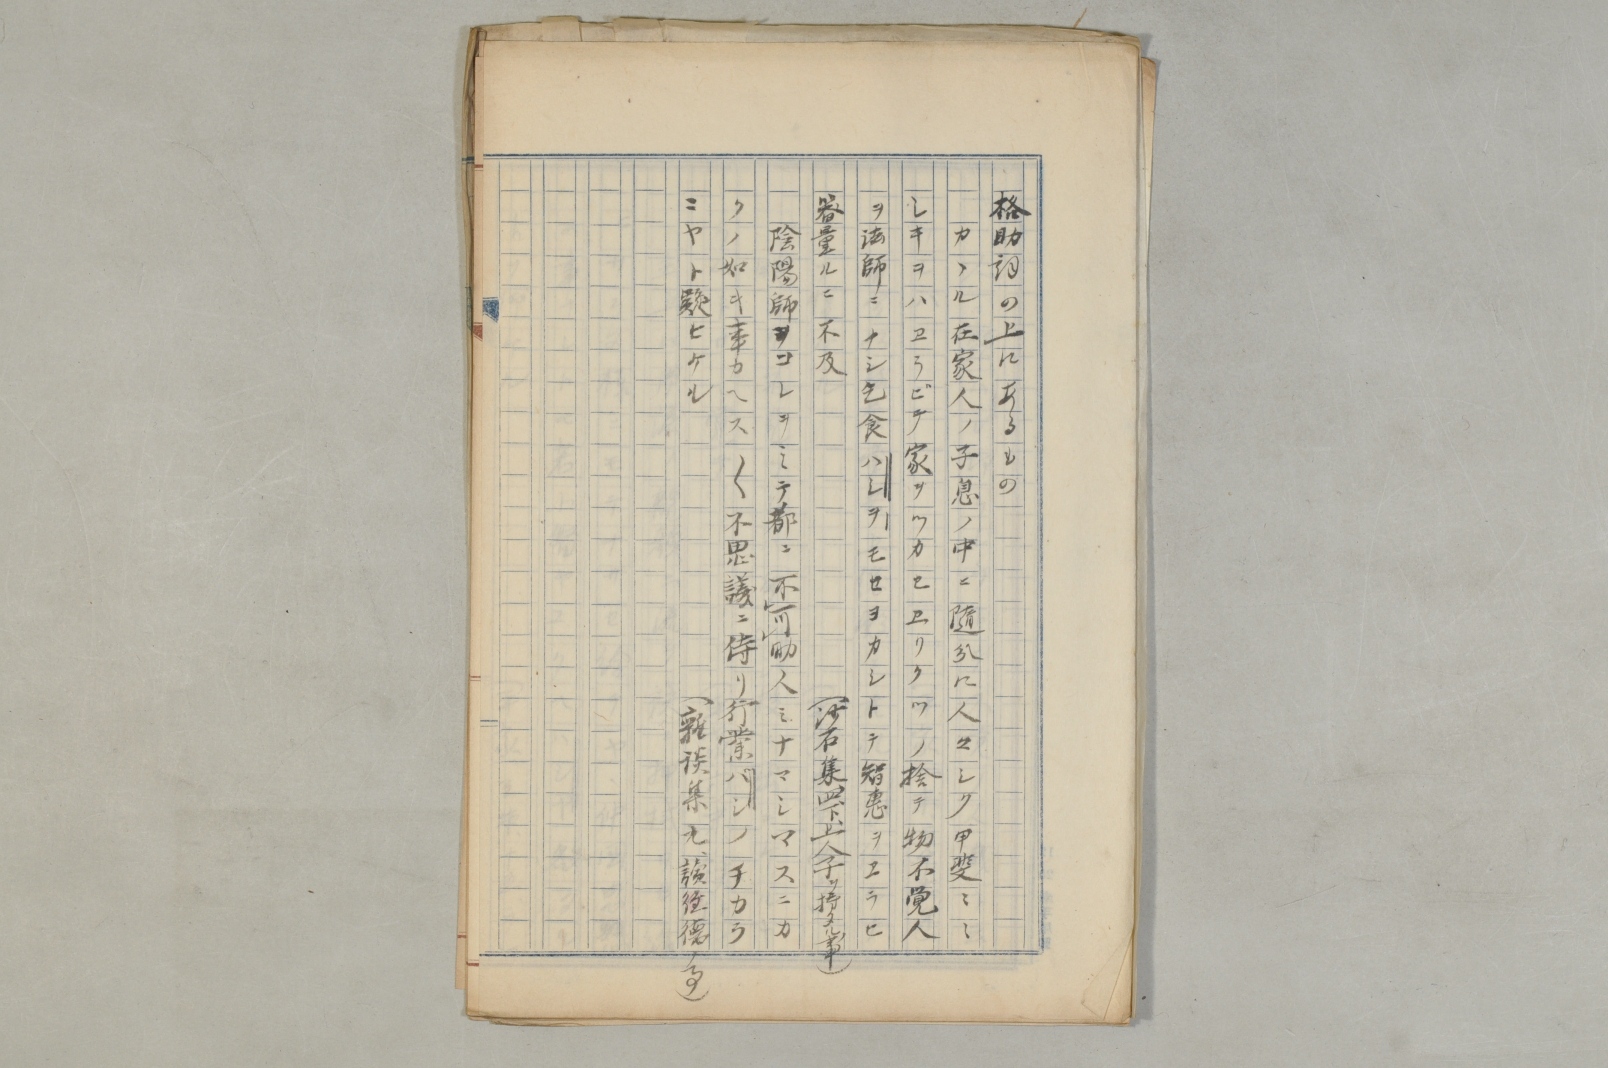 格助詞の上にあるもの
カヽル在家人ノ子息ノ中ニ随分に人ヲシク甲斐ミミ
シキヲハヱラビテ家ヲツカセヱリクツノ捨テ物不覚人
ヲ法師ニナシ乞食ハシヲモセヨカシトテ智恵ヲヱラヒ
器量ルニ不及 (沙石集四下、上人子ヲ持タル事)
陰陽師ヲコレヲミテ都ニ不可助人ミナマシマスニカ
クノ如キ事カヘス〱不思議ニ侍リ行業バシノチカラ
ニヤト疑ヒケル (雜談集九、讀經德ノ事)